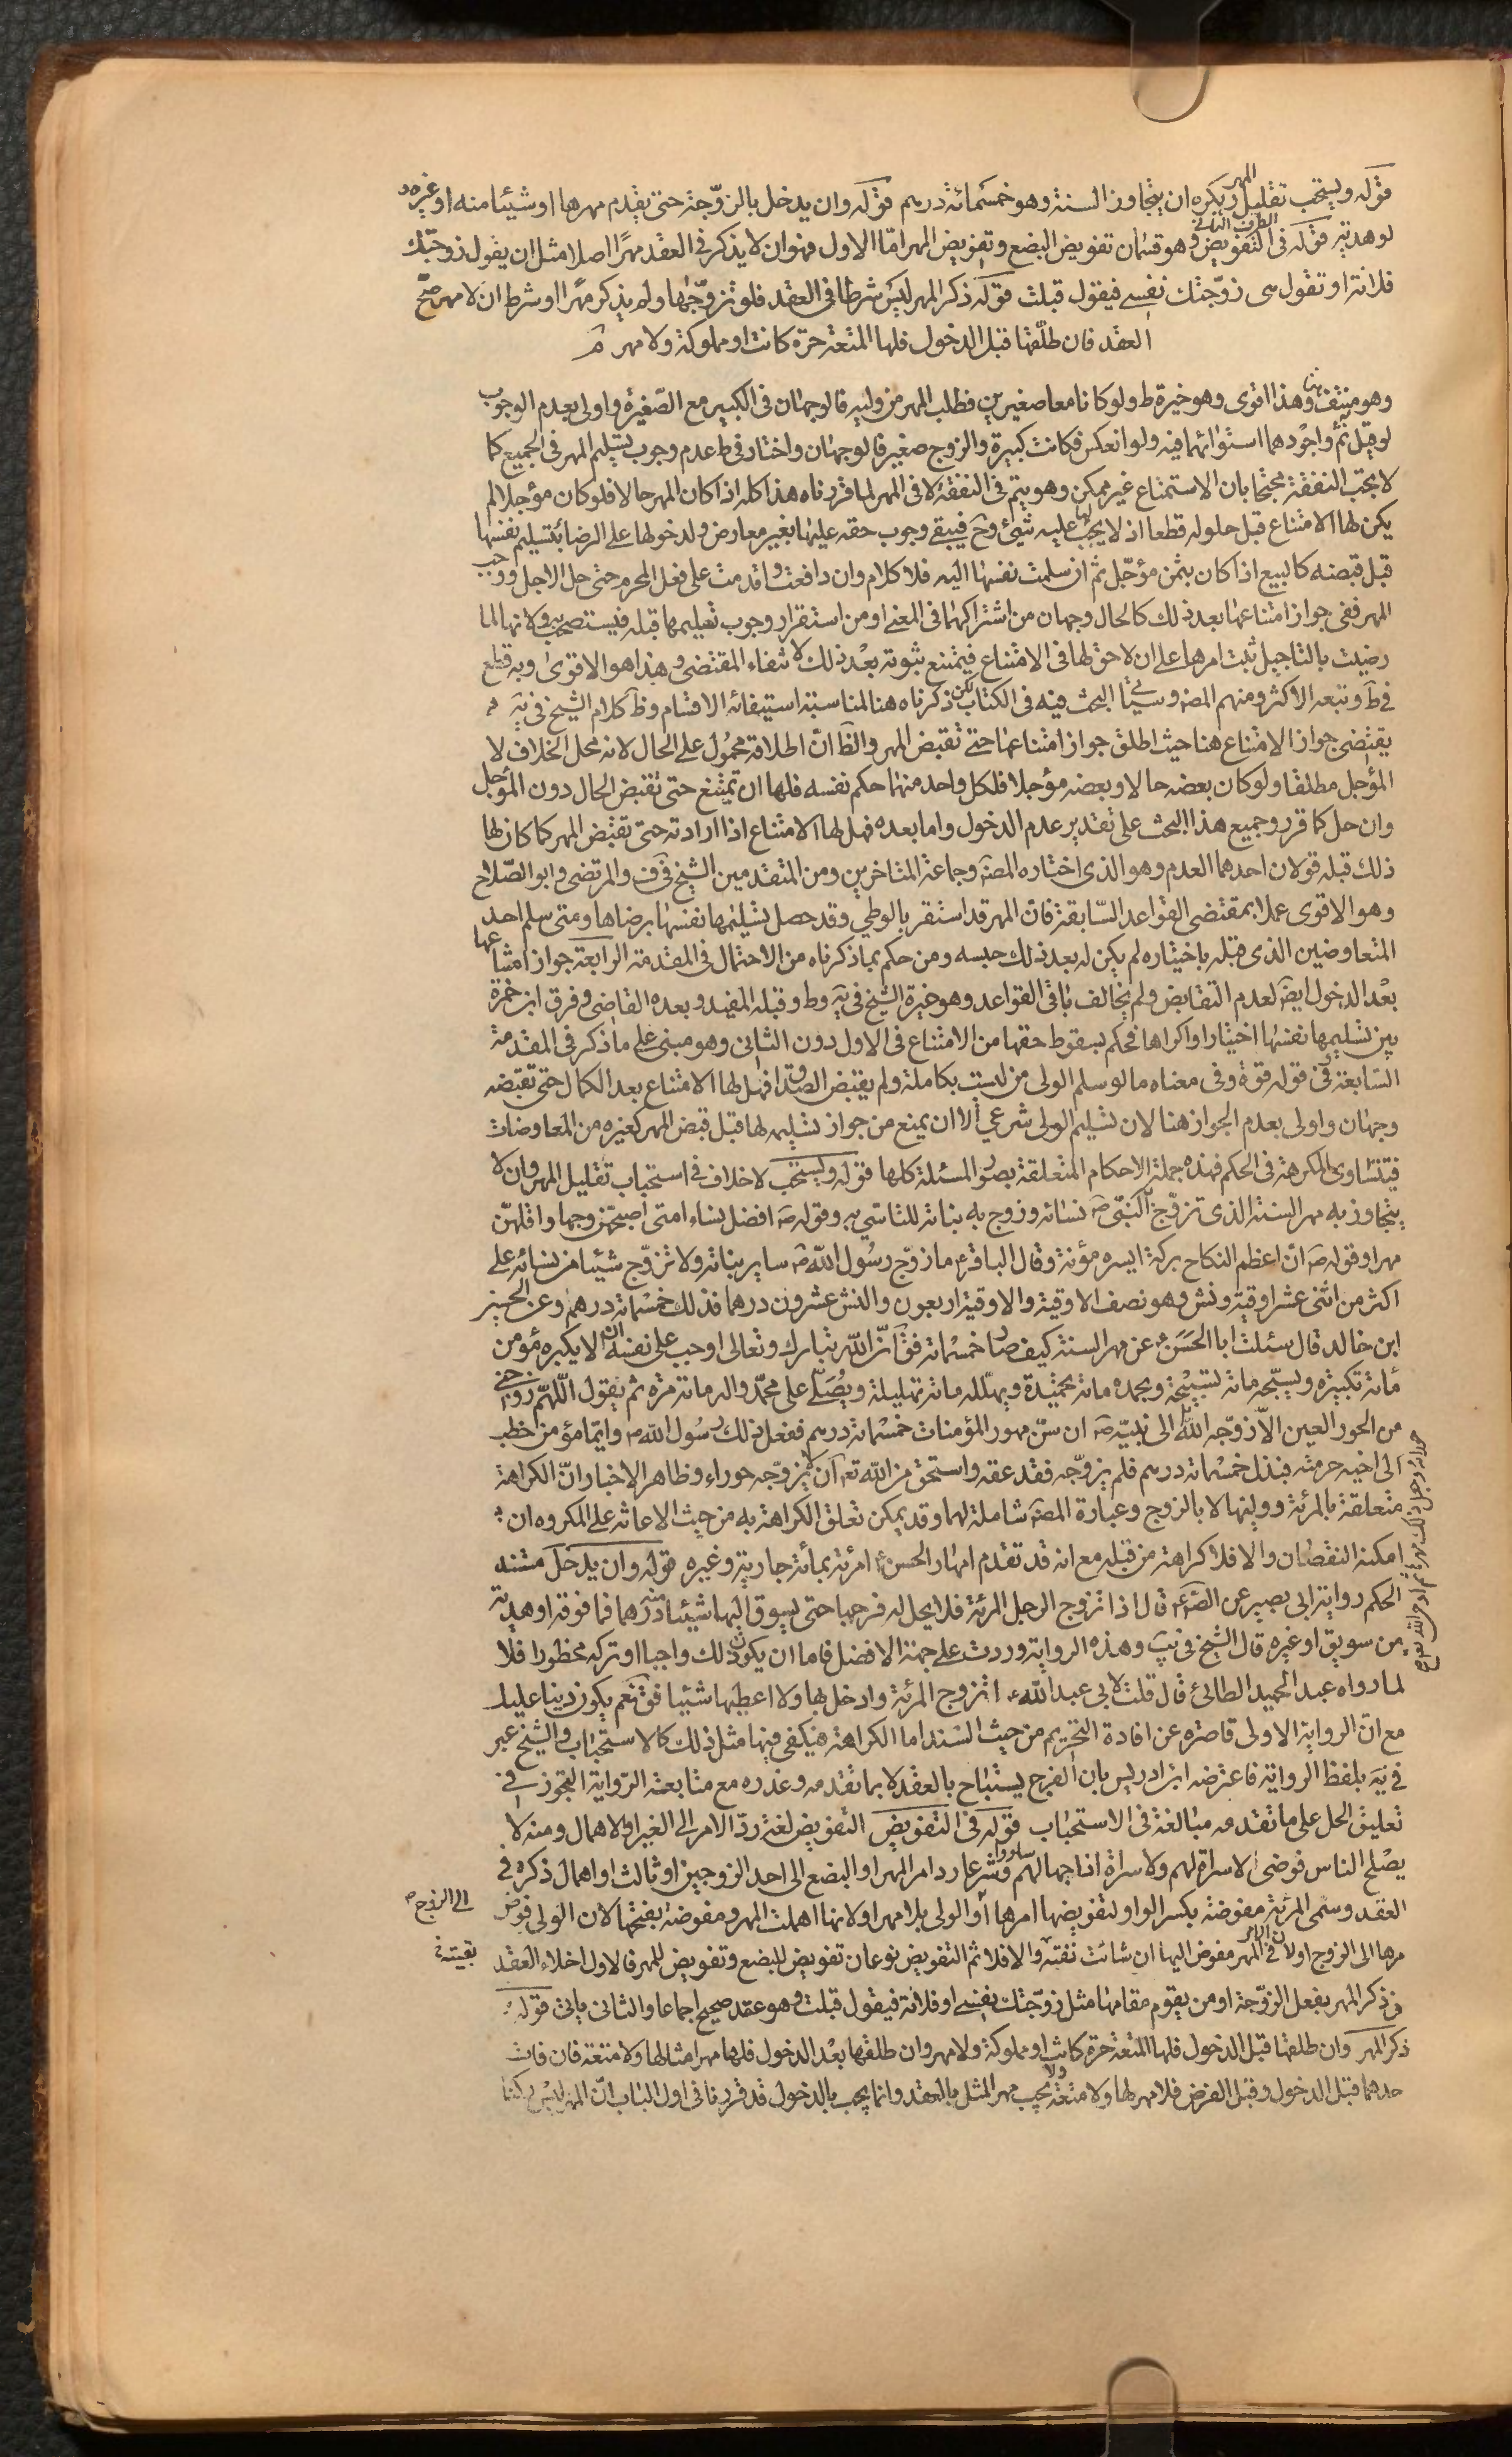 قوله ويستحب تقليل المهر ويكره ان يتجاوز السنة وهو خمسمائة درهم قوله وان يدخل بالزوجة حتى يقدم مهرها او شيئا منه او غيره
ولو هدية قوله الطرف الثاني في التفويض وهو قسمان تفويض البضع وتفويض المهر امّا الاول فهو ان لا يذكر في العقد مهرًا اصلا مثل ان يقول زوجتك
فلانة او تقول هي زوّجتك نفسي فيقول قبلت قوله ذكر المهر ليس شرطا في العقد فلو تزوّجها ولم يذكر مهرا او شرط ان لا مهر صحّ
العقد فان طلّقها قبل الدخول فلها المتعة حرة كانت او مملوكة ولا مهر
وهو منتف هنا وهذا اقوى وهو خيرة ط ولو كانا معا صغيرين فطلب المهر من وليه فالوجهان في الكبير مع الصّغيرة واولى بعدم الوجوب
لو قيل ثم واجودهما استوائهما فيه ولو انعكس فكانت كبيرة والزوج صغير فالوجهان واختار في ط عدم وجوب تسليم المهر في الجميع كما
لا يجب النفقة محتجّا بان الاستمتاع غير ممكن وهو يتم في النفقة لا في المهر لما قررناه هذا كله اذا كان المهر حالا فلو كان مؤجلا لم
يكن لها الامتناع قبل حلوله قطعا اذ لا يجب لها عليه شيئ وح فيبقى وجوب حقه عليها بغير معارض ولدخولها على الرضا بتسليم نفسها
قبل قبضه كالبيع اذا كان بثمن مؤجّل ثم ان سلمت نفسها اليه فلا كلام وان دافعت واقدمت على فعل المحرم حتى حل الاجل ووجب
المهر ففي جواز امتناعها بعد ذلك كالحال وجهان من اشتراكهما في المعنى ومن استقرار وجوب تسليمها قبله فيستصحب ولانها لما
رضيت بالتاجيل ثبت امرها على ان لا حق لها في الامتناع فيمتنع ثبوته بعد ذلك لانتفاء المقتضي وهذا هو الاقوى وبه قطع
في ط وتبعه الاكثر ومنهم المصه وسياتي البحث فيه في الكتاب لكن ذكرناه هنا لمناسبة استيفائه الاقسام وظ كلام الشيخ في يه
يقتضي جواز الامتناع هنا حيث اطلق جواز امتناعها حتى تقبض المهر والظ انّ اطلاقه محمول على الحال لانه محل الخلاف لا
المؤجل مطلقا ولو كان بعضه حالا وبعضه مؤجلا فلكل واحد منهما حكم نفسه فلها ان تمتنع حتى تقبض الحال دون المؤجل
وان حل كما قرر وجميع هذا البحث على تقدير عدم الدخول واما بعده فهل لها الامتناع اذا ارادته حتى تقبض المهر كما كان لها
ذلك قبله قولان احدهما العدم وهو الذي اختاره المصه وجماعة المتاخرين ومن المتقدمين الشيخ في ف والمرتضى وابو الصّلاح
وهو الاقوى عملا بمقتضى القواعد السّابقة فان المهر قد استقر بالوطي وقد حصل تسليمها نفسها برضاها ومتى سلم احد
المتعاوضين الذي قبله باختياره لم يكن له بعد ذلك حبسه ومن حكم بما ذكرناه من الاحتمال في المقدمة الرابعة جواز امتناعها
بعد الدخول ايضا لعدم التقابض ولم يخالف باقي القواعد وهو خيرة الشيخ في يه وط وقبله المفيد وبعده القاضي وفرق ابن حمزة
بين تسليمها نفسها اختيارا واكراها فحكم بسقوط حقها من الامتناع في الاول دون الثاني وهو مبنى على ما ذكر في المقدمة
السابعة في قوله قوة وفي معناه ما لو سلم الولى من ليست بكاملة ولم يقبض الصداق فهل لها الامتناع بعد الكمال حتى تقبضه
وجهان واولى بعدم الجواز هنا لان تسليم الولى شرعي الا ان يمنع من جواز تسليمه لها قبل قبض المهر كغيره من المعاوضات
فيتساوى المكرهة في الحكم فهذه جملة الاحكام المتعلقة بصور المسئلة كلها قوله ويستحب لا خلاف في استحباب تقليل المهر وان لا
يتجاوز به مهر السنة الذى تزوّج به النبي ص نسائه وزوج به بناته للتاسي به وقوله ص افضل نساء امتى اصبحهن وجها واقلهنّ
مهرا وقوله ص انّ اعظم النكاح بركة ايسره مؤنة وقال الباقر ع ما زوّج رسول الله ص ساير بناته ولا تزوّج شيئا من نسائه على
اكثر من اثنتى عشر اوقية ونش وهو نصف الاوقية والاوقية اربعون والنش عشرون درهما فذلك خمسمائة درهم وعن الحسين
ابن خالد قال سئلت ابا الحسن ع عن مهر السنة كيف صار خمسمائة فق انّ الله تبارك وتعالى اوجب على نفسه ان لا يكبره مؤمن
مائة تكبيرة ويسبّحه مائة تسبيحة ويحمده مائة تحميدة ويهلّله مائة تهليلة ويصلّي على محمّد واله مائة مرة ثم يقول اللّهمّ زوّجني
من الحور العين الّا زوّجه الله حوراء وجعل ذلك مهرها ثم اوحى الله تع الى نبيّه ص ان سنّ مهور المؤمنات خمسمائة درهم ففعل ذلك رسول الله ص وايّما مؤمن خطب
الى اخيه حرمته فبذل خمسمائة درهم فلم يزوّجه فقد عقه واستحق من الله تع ان لا يزوّجه حوراء وظاهر الاخبار انّ الكراهة
متعلقة بالمرئة ووليها لا بالزوج وعبارة المصه شاملة لهما وقد يمكن تعلق الكراهة به من حيث الاعانة على المكروه ان
امكنه النقصان والا فلا كراهة من قبله مع انه قد تقدم امهار الحسن ع امرئة بمائة جارية وغيره قوله وان يدخل مستند
الحكم رواية ابى بصير عن الص ع قال اذا تزوج الرجل المرئة فلا يحل له فرجها حتى يسوق اليها شيئا درهما فما فوقه او هدية
من سويق او غيره قال الشيخ في يب وهذه الرواية وردت على جهة الافضل فاما ان يكون ذلك واجبا او تركه محظورا فلا
لما رواه عبد الحميد الطائي قال قلت لابى عبد الله ع اتزوج المرئة وادخل بها ولا اعطيها شيئا فق نعم يكون دينا عليك
مع انّ الرواية الاولى قاصرة عن افادة التحريم من حيث السند اما الكراهة فيكفى فيها مثل ذلك كالاستحباب والشيخ عبر
في يه بلفظ الرواية فاعترضه ابن ادريس بان الفرج يستباح بالعقد لا بما تقدمه وعذره مع متابعة الرّواية التجوز في
تعليق الحل على ما تقدمه مبالغة في الاستحباب قوله في التفويض التفويض لغة ردّ الامر الى الغير او الاهمال ومنه لا
يصلح الناس فوضى لا سراة لهم ولا سراة اذا جهالهم سادوا وشرعا رد امر المهر او البضع الى احد الزوجين او ثالث او اهمال ذكره في
العقد وسمى المرئة مفوضة بكسر الواو لتفويضها امرها الى الزوج او الولى بلا مهر او لانها اهملت المهر ومفوضة بفتحها لان الولى فوض
مرها الى الزوج او لان الامر في المهر مفوض اليها ان شائت نفته والا فلا ثم التفويض نوعان تفويض للبضع وتفويض للمهر فالاول اخلاء العقد
ن ذكر المهر بفعل الزوجة او من يقوم مقامها مثل زوّجتك نفسي او فلانة فيقول قبلت وهو عقد صحيح اجماعا والثانى ياتى قوله
ذكر المهر وان طلقها قبل الدخول فلها المتعة حرة كانت او مملوكة ولا مهر وان طلقها بعد الدخول فلها مهر امثالها ولا متعة فان مات
حدهما قبل الدخول وقبل الفرض فلا مهر لها ولا متعة ولا يجب مهر المثل بالعقد وانما يجب بالدخول قد قررنا في اول الباب انّ المهر ليس ركنا